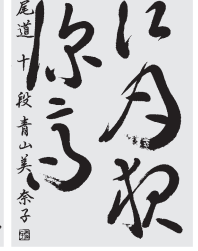 江月夜
深高
尾道 十段 青山美奈子